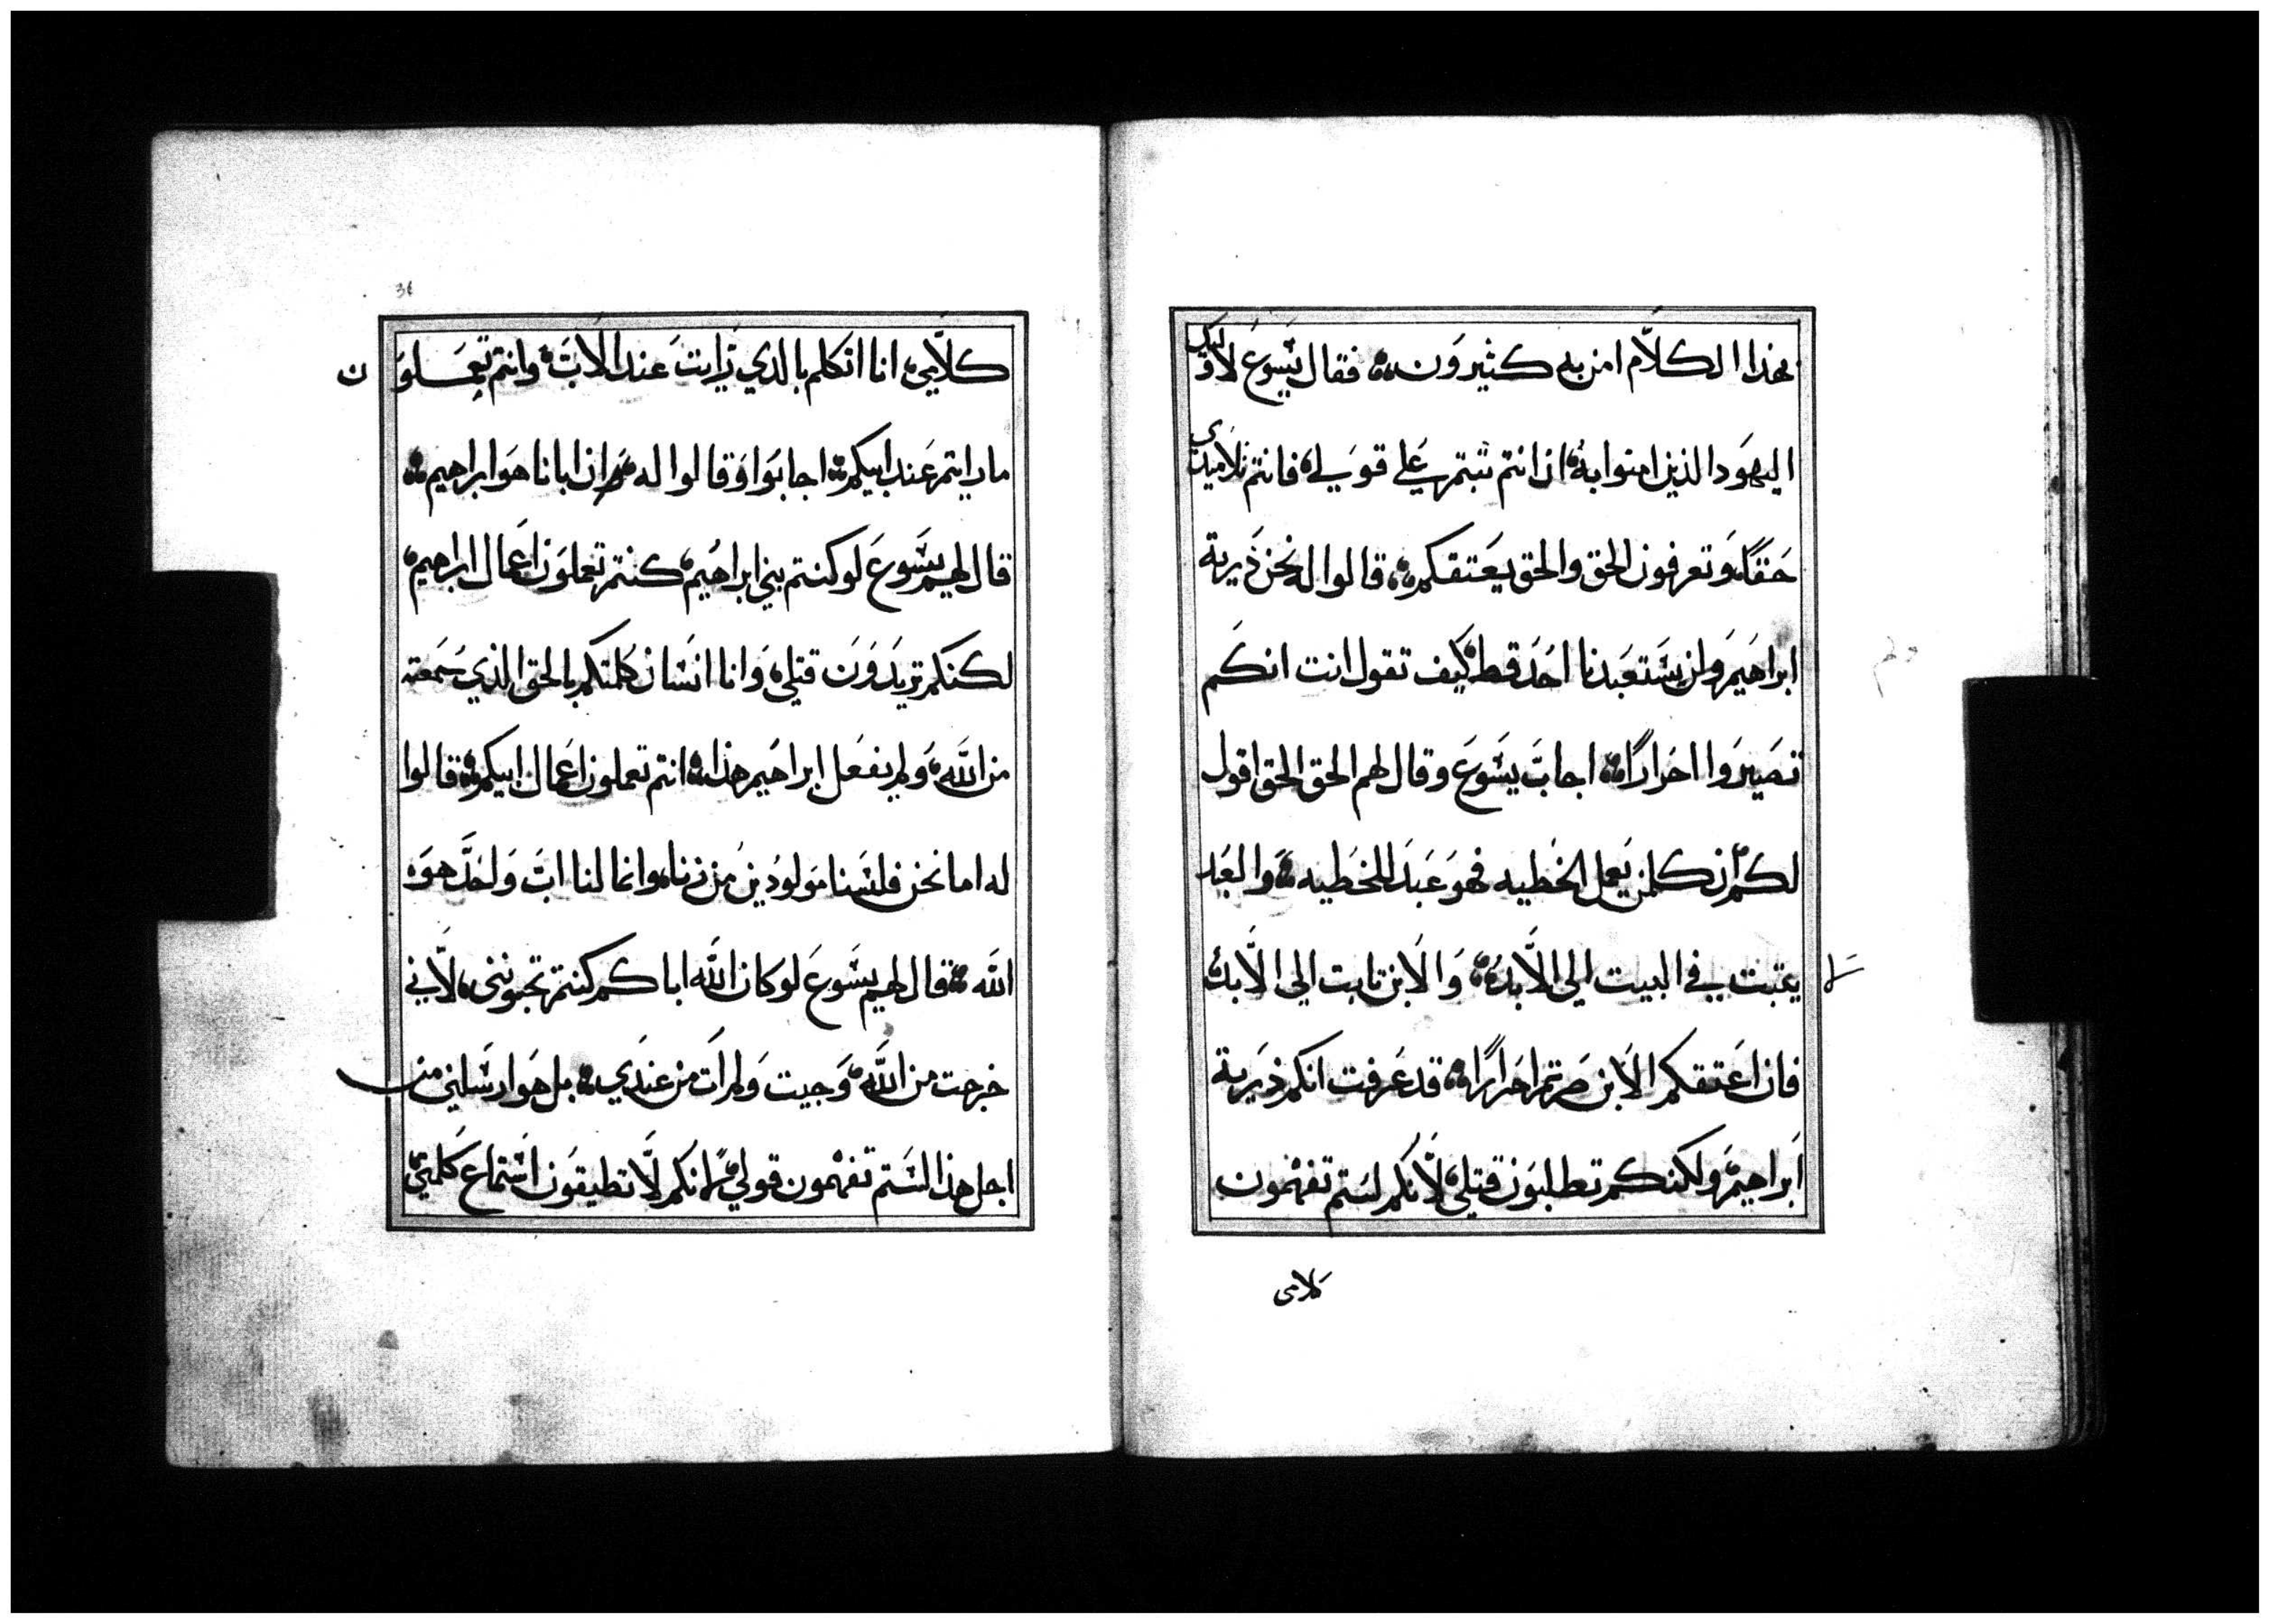 بهذا الكلام امن به كثيرون فقال يسوع لاوليك
اليهود الذين امنوا به ان انتم ثبتم على قولي فانتم تلاميدي
حقا وتعرفون الحق والحق يعتقكم قالوا له نحن ذرية
ابراهيم ولن يستعبدنا احد قط كيف تقول انت انكم
تصيروا احرارا اجاب يسوع وقال لهم الحق الحق اقول
لكم ان كلمن يعمل الخطيه فهو عبد للخطيه والعبد
يتبت في البيت الي الابد والابن تابت الي الابد
لا
فان اعتقكم الابن صرتم احرارا قد عرفت انكم ذرية
ابراهيم ولكنكم تطلبون قتلي لانكم لستم تفهمون
كلامى
36
كلامي انا اتكلم بالذي رايت عند الاب وانتم تعملون
ما رايتم عند ابيكم اجابوا وقالوا له ان ابانا هو ابراهيم
قال لهم يسوع لو كنتم بني ابراهيم كنتم تعملون اعمال ابراهيم
لكنكم تريدون قتلي وانا انسان كلمتكم بالحق الذي سمعته
من الله ولم يفعل ابراهيم هذا انتم تعملون اعمال ابيكم قالوا
له اما نحن فلسنا مولودين من زنا وانما لنا اب واحد هو
الله قال لهم يسوع لو كان الله اباكم كنتم تحبونني لاني
خرجت من الله وجيت ولم ات من عندي بل هو ارسلني من
اجل هذا لستم تفهمون قولي لانكم لا تطيقون استماع كلمتي